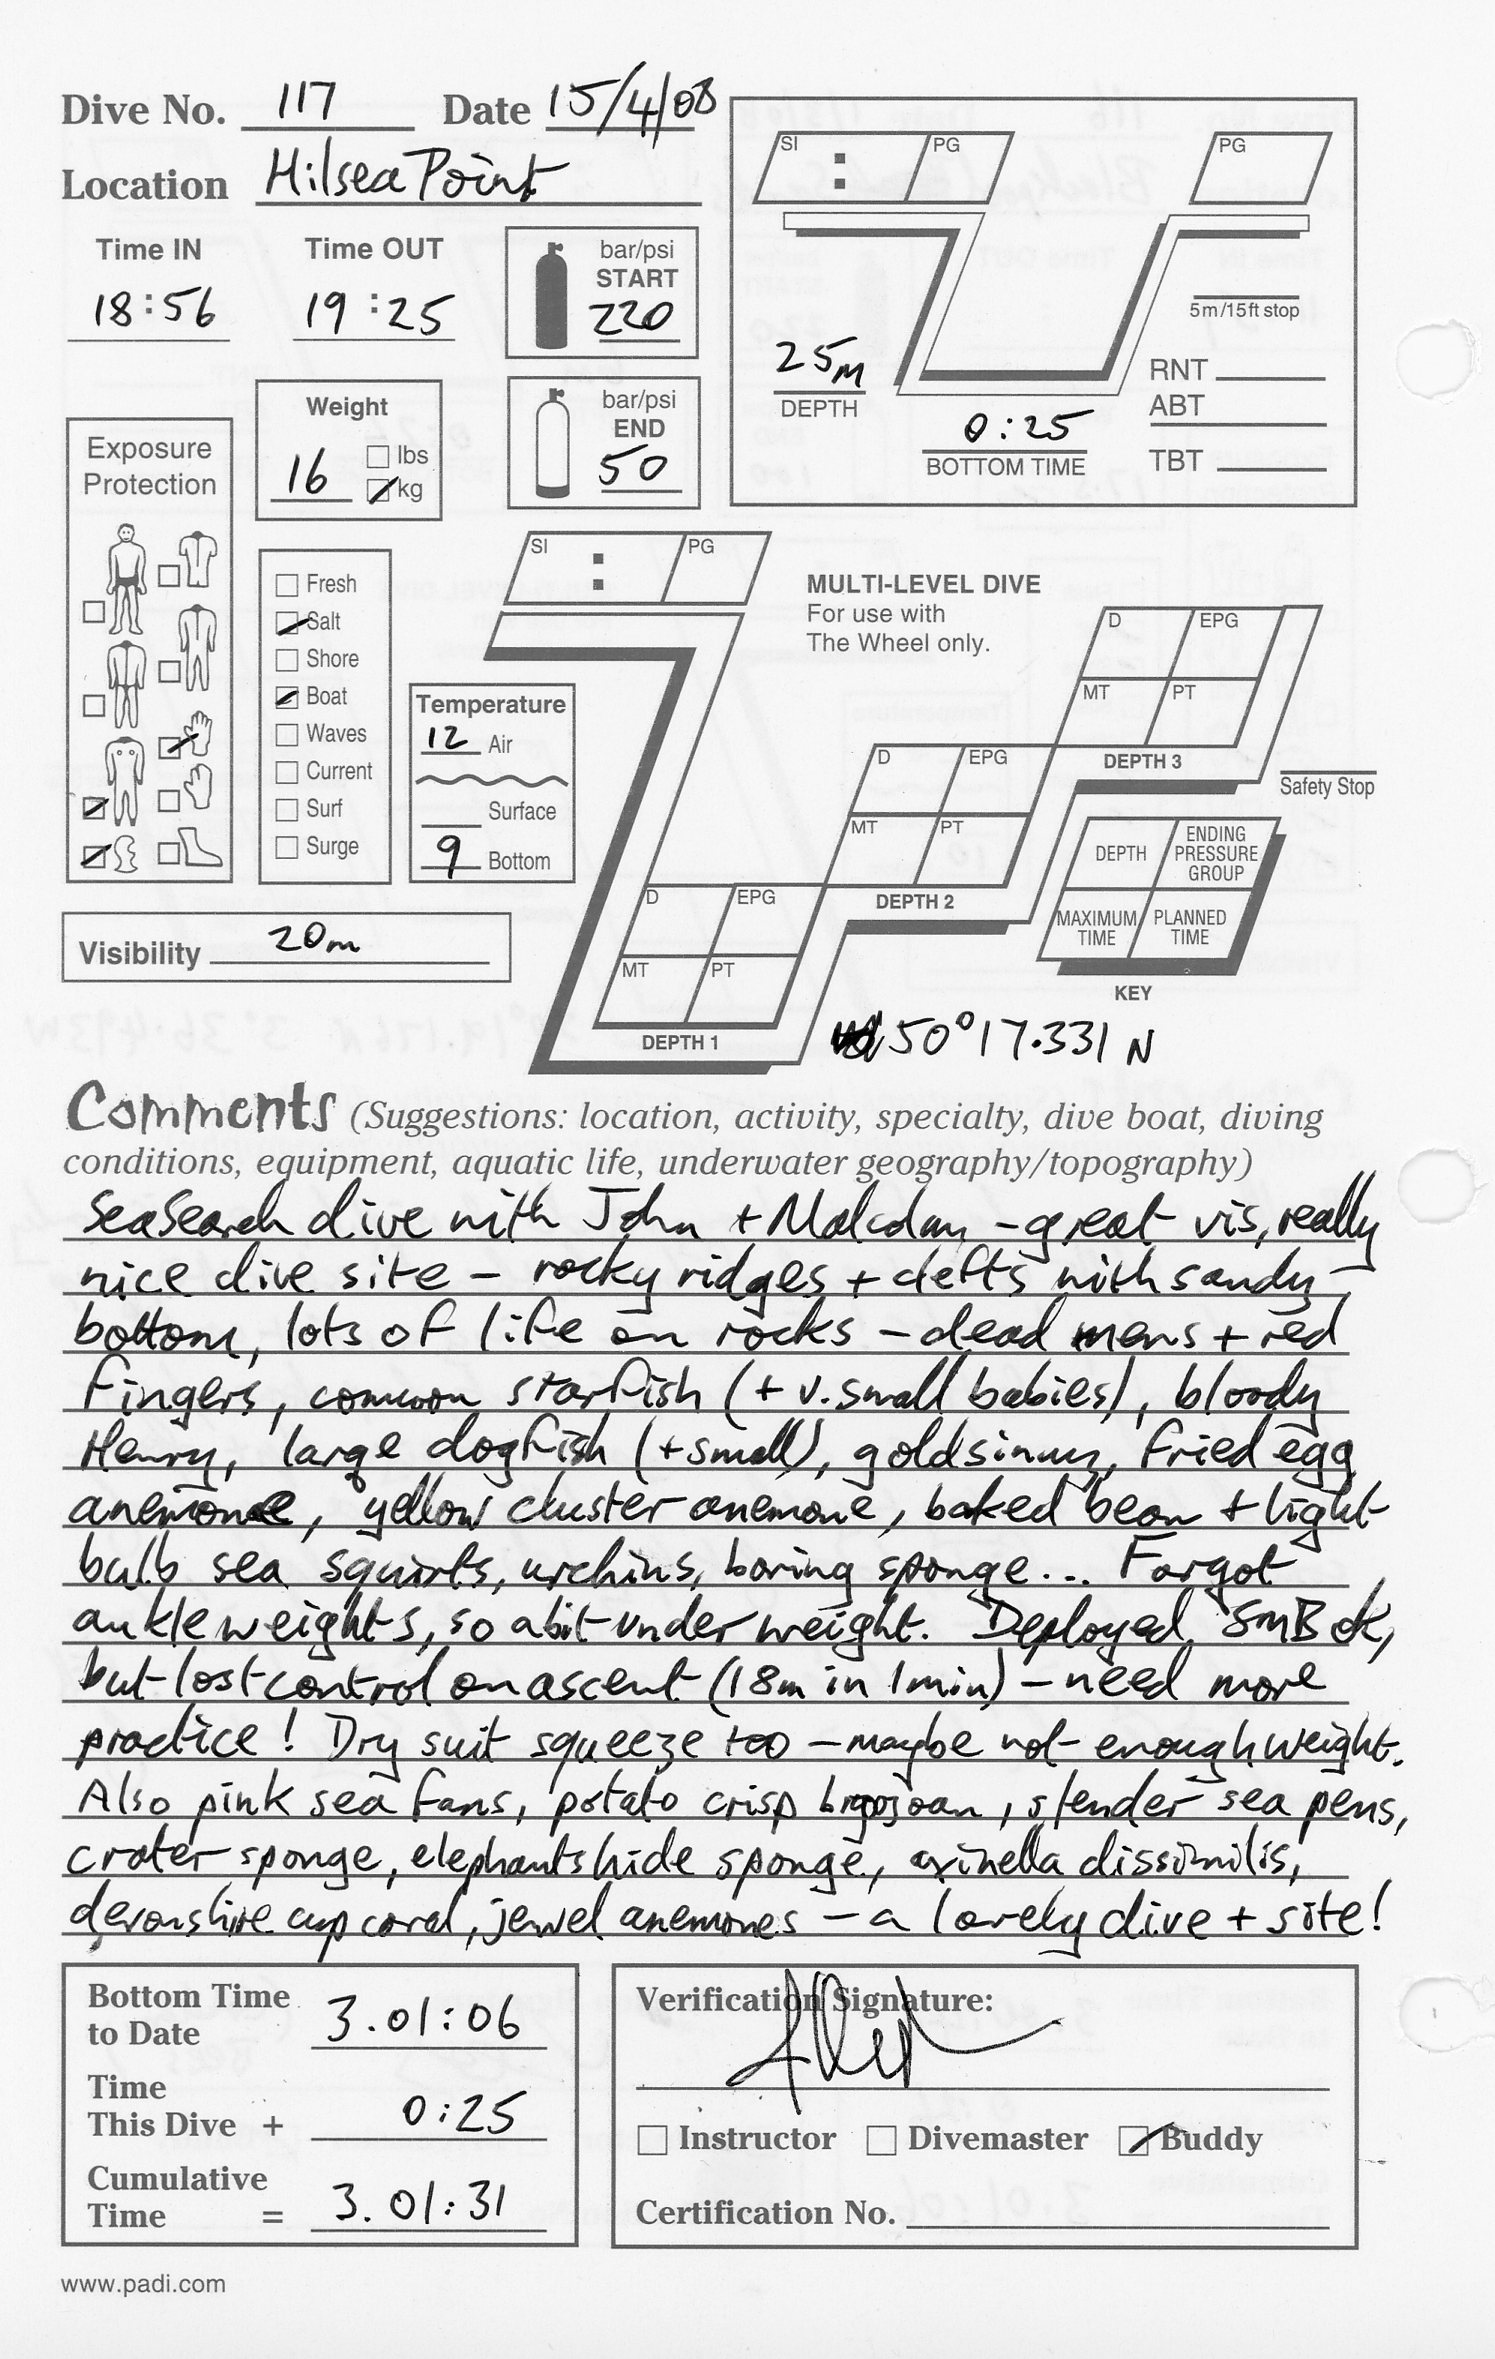 Dive No. 117 Date 15/4/08
Location Hilsea Point
Time IN Time OUT
18:56 19:25
bar/psi
START
220
bar/psi
END
50
Weight
16 lbs
kg
Exposure
Protection
Fresh
Salt
Shore
Boat
Waves
Current
Surf
Surge
Temperature
12 Air
Surface
9 Bottom
Visibility 20m
SI : PG
PG
5m/15ft stop
25m
DEPTH
0:25
BOTTOM TIME
RNT
ABT
TBT
SI : PG
MULTI-LEVEL DIVE
For use with
The Wheel only.
D EPG
MT PT
DEPTH 3
Safety Stop
D EPG
MT PT
DEPTH 2
D EPG
MT PT
DEPTH 1
DEPTH ENDING PRESSURE GROUP
MAXIMUM TIME PLANNED TIME
KEY
50°17.331 N
Comments (Suggestions: location, activity, specialty, dive boat, diving
conditions, equipment, aquatic life, underwater geography/topography)
SeaSearch dive with John + Malcolm - great vis, really
nice dive site - rocky ridges + clefts with sandy
bottom, lots of life on rocks - dead mens + red
fingers, common starfish (+ v. small babies), bloody
Henry, large dogfish (+small), goldsinny, fried egg
anemone, yellow cluster anemone, baked bean + light
bulb sea squirts, urchins, boring sponge... Forgot
ankle weights, so a bit under weight. Deployed SMB ok,
but lost control on ascent (18m in 1min) - need more
practice! Dry suit squeeze too - maybe not enough weight.
Also pink sea fans, potato crisp bryozoan, slender sea pens,
crater sponge, elephants hide sponge, axinella dissimilis,
devonshire cup coral, jewel anemones - a lovely dive + site!
Bottom Time
to Date 3.01:06
Time
This Dive + 0:25
Cumulative
Time = 3.01:31
Verification Signature:
Instructor Divemaster Buddy
Certification No.
www.padi.com